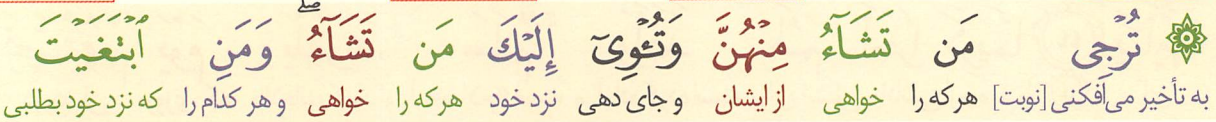 ۞ تُرْجِى مَن تَشَآءُ مِنْهُنَّ وَتُـْٔوِىٓ إِلَيْكَ مَن تَشَآءُ ۖ وَمَنِ ٱبْتَغَيْتَ
به تأخیر می‌افکنی [نوبت] هر که را خواهی از ایشان و جای دهی نزد خود هر که را خواهی و هر کدام را که نزد خود بطلبی